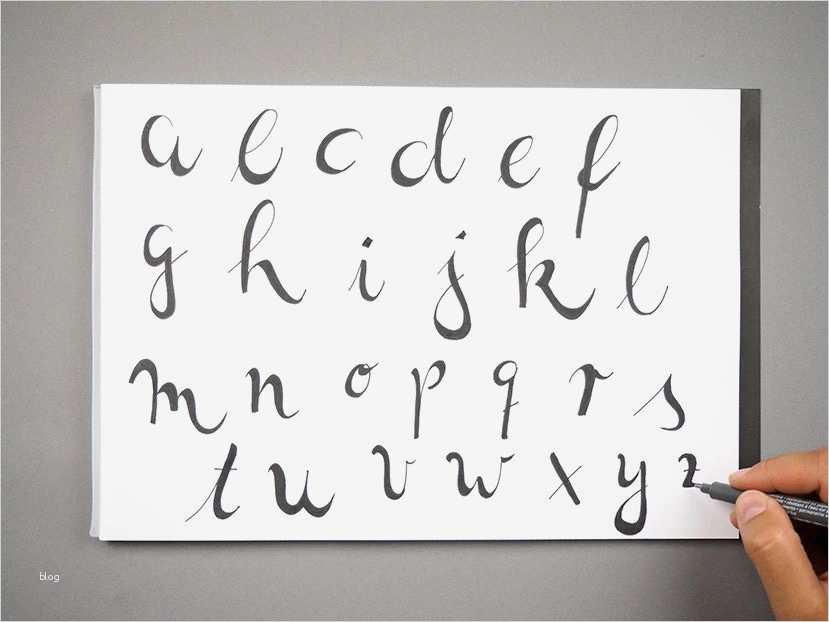 a b c d e f
g h i j k l
m n o p q r s
t u v w x y z
blog